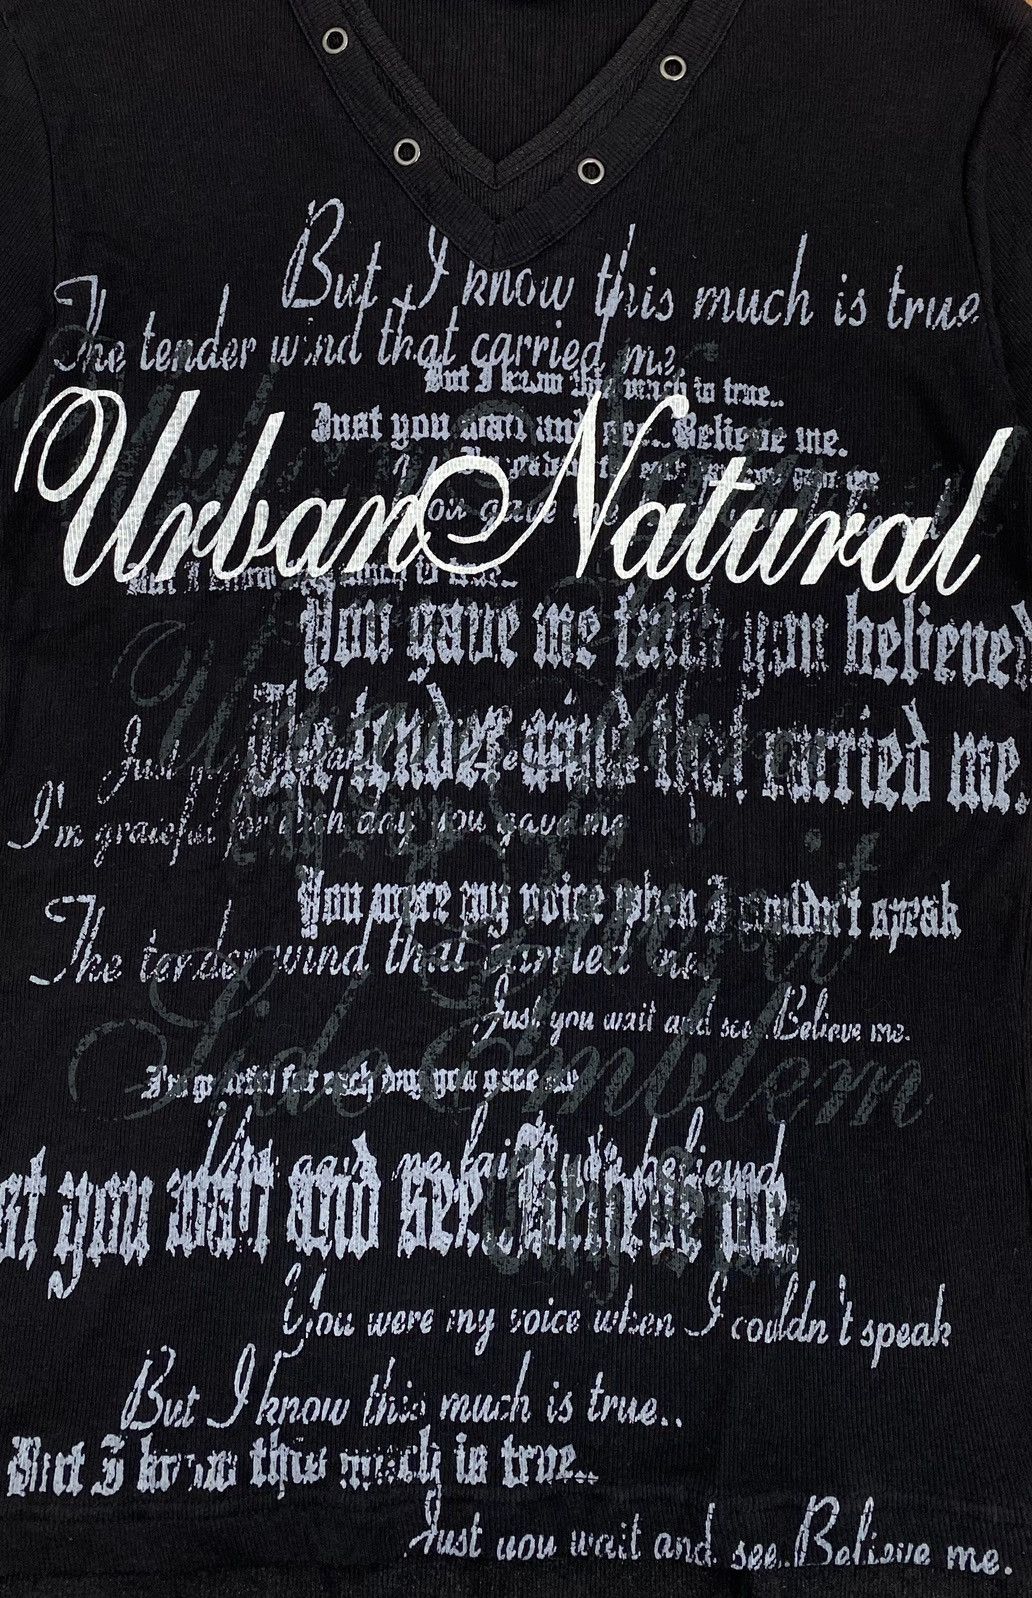 But I know this much is true
The tender wind that carried me.
But I know this much is true..
Just you wait and see.. Believe me.
Urban Natural
You gave me
But I know this much is true..
You gave me faith you believed
The tender wind that carried me.
Just you
I'm grateful for each day you gave me
You were my voice when I couldn't speak
The tender wind that carried me
Just you wait and see. Believe me.
Side Emblem
I'm grateful for each day you gave me
You gave me faith you believed
st you wait and see. Believe me.
You were my voice when I couldn't speak
But I know this much is true..
But I know this much is true..
Just you wait and see. Believe me.